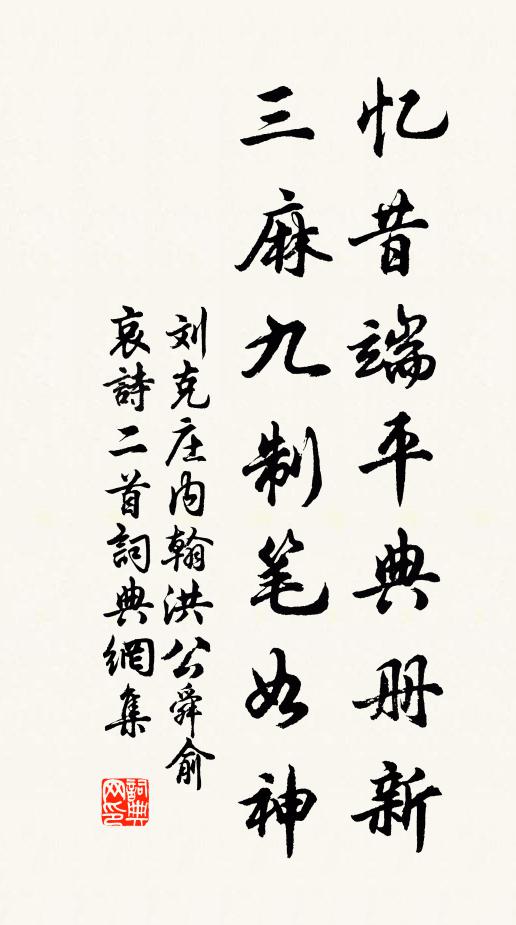 忆昔端平典册新
三麻九制笔如神
刘克庄内翰洪公舜俞
哀詩二首詞典網集
詞典
网印